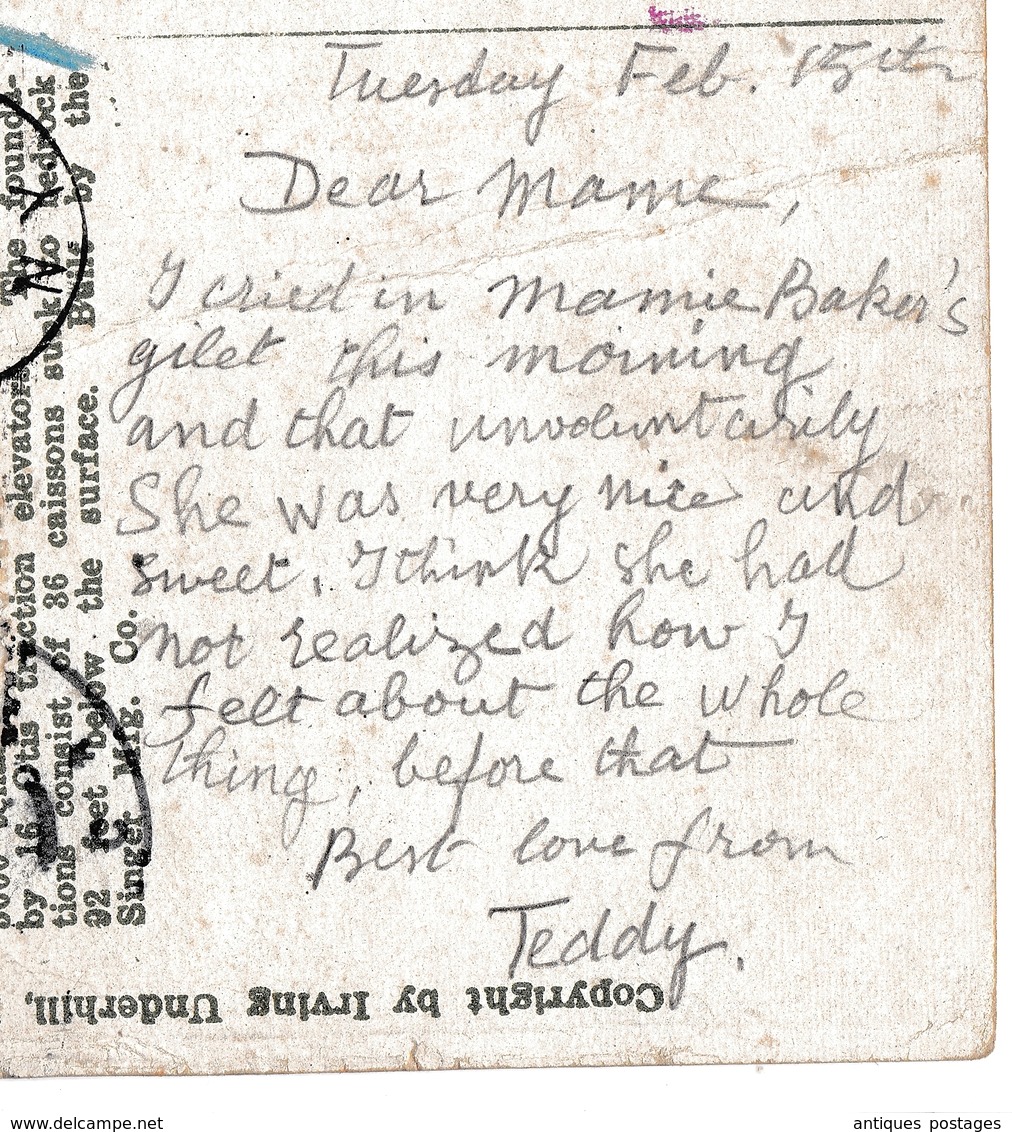 Tuesday Feb. 15th
Dear Mame,
I cried in Mamie Baker's
gilet this morning
and that unvoluntarily
She was very nice and
sweet. I think she had
not realized how I
felt about the whole
thing, before that
Best love from
Teddy.
elevators. The founda-
by 16 Otis traction
tions consist of 36 caissons sunk to bedrock
92 feet below the surface. Built by the
Singer Mfg. Co.
Copyright by Irving Underhill,
N Y
www.delcampe.net
antiques postages